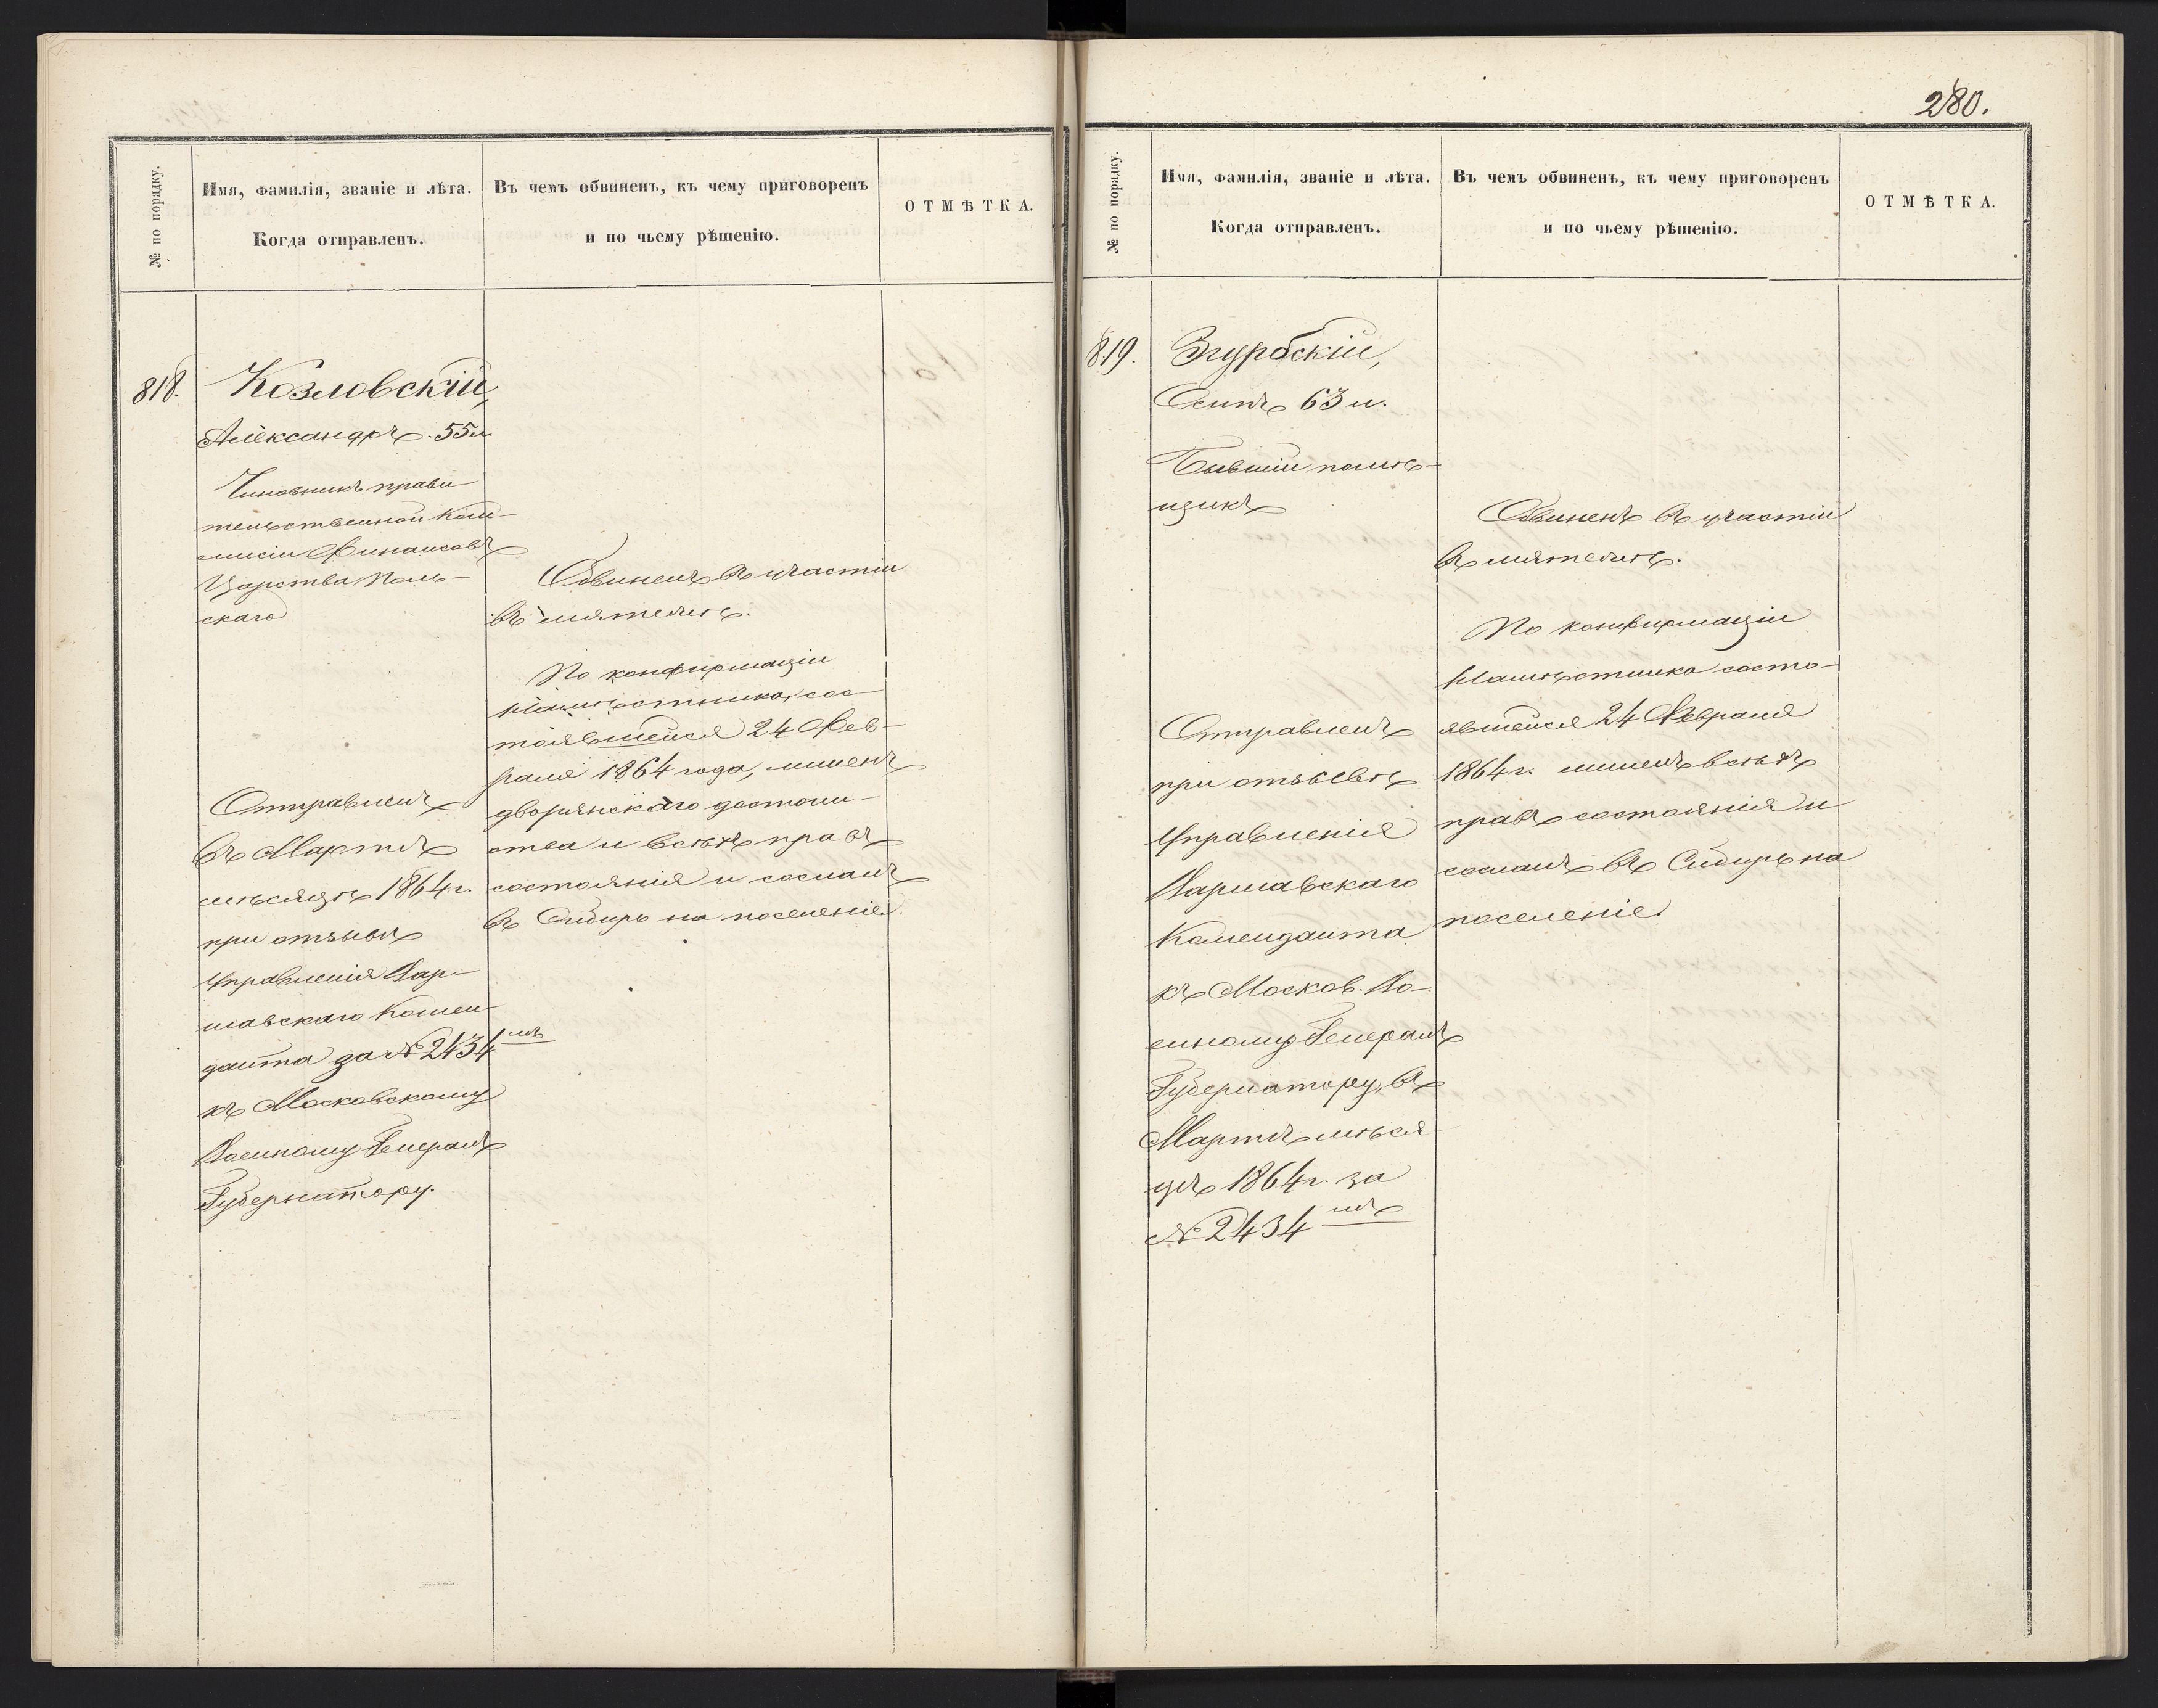 № по порядку.
Имя, фамилія, званіе и лѣта.
Когда отправленъ.
Въ чемъ обвиненъ, къ чему приговоренъ
и по чьему рѣшенію.
ОТМѢТКА.
818.
Козловскій,
Александръ. 55 л.
Чиновникъ прави
тельственной Ком-
мисіи Финансовъ
Царства Поль-
скаго
Отправленъ
въ Мартѣ
мѣсяцѣ 1864 г.
при отзывѣ
Управленія Вар-
шавскаго Комен
данта за № 2434 мъ
къ Московскому
Военному Генералъ
Губернатору.
Обвиненъ въ участіи
въ мятежѣ.
По конфирмаціи
Намѣстника, сос
тоявшейся 24 Фев-
раля 1864 года, лишенъ
дворянскаго достоин-
ства и всѣхъ правъ
состоянія и сосланъ
въ Сибирь на поселеніе.
280.
№ по порядку.
Имя, фамилія, званіе и лѣта.
Когда отправленъ.
Въ чемъ обвиненъ, къ чему приговоренъ
и по чьему рѣшенію.
ОТМѢТКА.
819.
Згурскій,
Осипъ 63 л.
Бывшій помѣ-
щикъ
Отправленъ
при отзывѣ
Управленія
Варшавскаго
Коменданта
къ Москов. Во-
енному Генералъ
Губернатору, въ
Мартѣ мѣся
цѣ 1864 г. за
№ 2434 мъ
Обвиненъ въ участіи
въ мятежѣ.
По конфирмаціи
Намѣстника состо-
явшейся 24 Февраля
1864 г. лишенъ всѣхъ
правъ состоянія и
сосланъ въ Сибирь на
поселеніе.